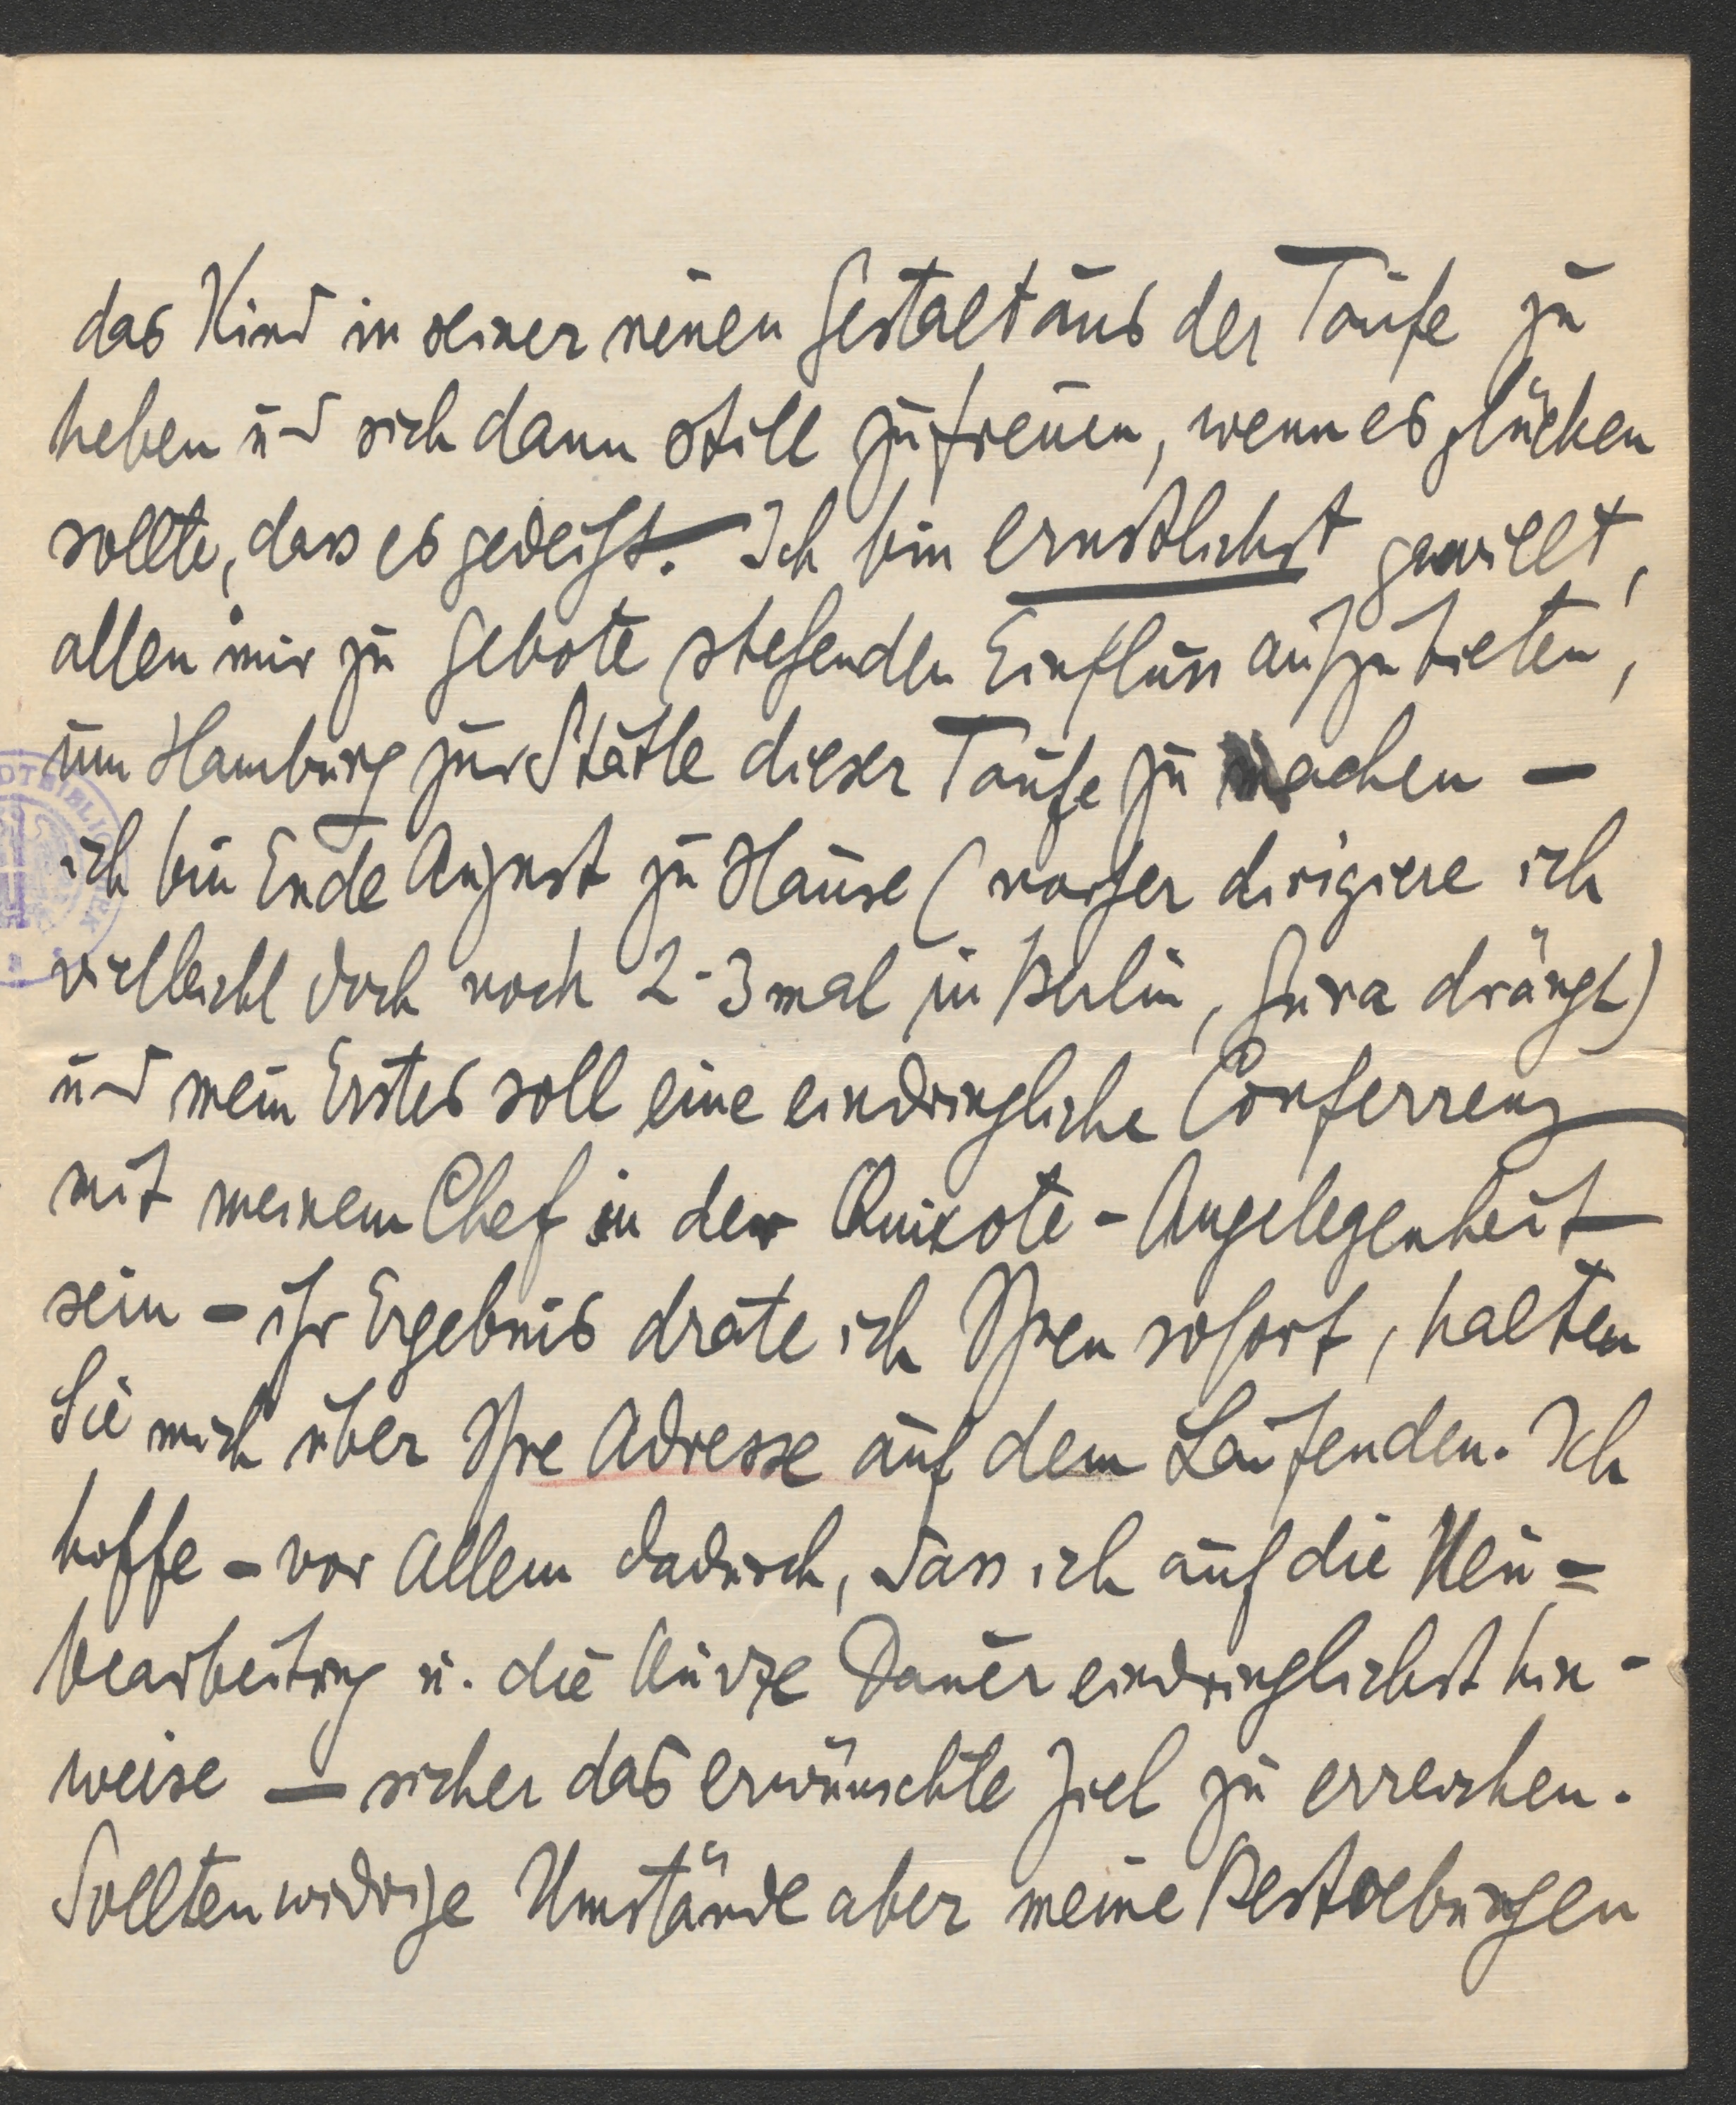 das Kind in seiner neuen Gestalt aus der Taufe zu
heben und sich dann still zu freuen, wenn es glücken
sollte, dass es gedeiht. Ich bin ernstlichst gewillt,
allen mir zu Gebote stehenden Einfluss aufzubieten,
um Hamburg zur Stätte dieser Taufe zu machen –
ich bin Ende August zu Hause (vorher dirigiere ich
vielleicht doch noch 2-3 mal in Berlin, Gura drängt)
und mein Erstes soll eine eindringliche Conferrenz
mit meinem Chef in der Quixote-Angelegenheit
sein – ihr Ergebnis drate ich Ihnen sofort, halten
Sie mich über Ihre Adresse auf dem Laufenden. Ich
hoffe – vor Allem dadurch, dass ich auf die Neu=
bearbeitung u. die kürze Dauer eindringlichst hin-
weise – sicher das erwünschte Ziel zu erreichen.
Sollten widrige Umstände aber meine Bestrebungen